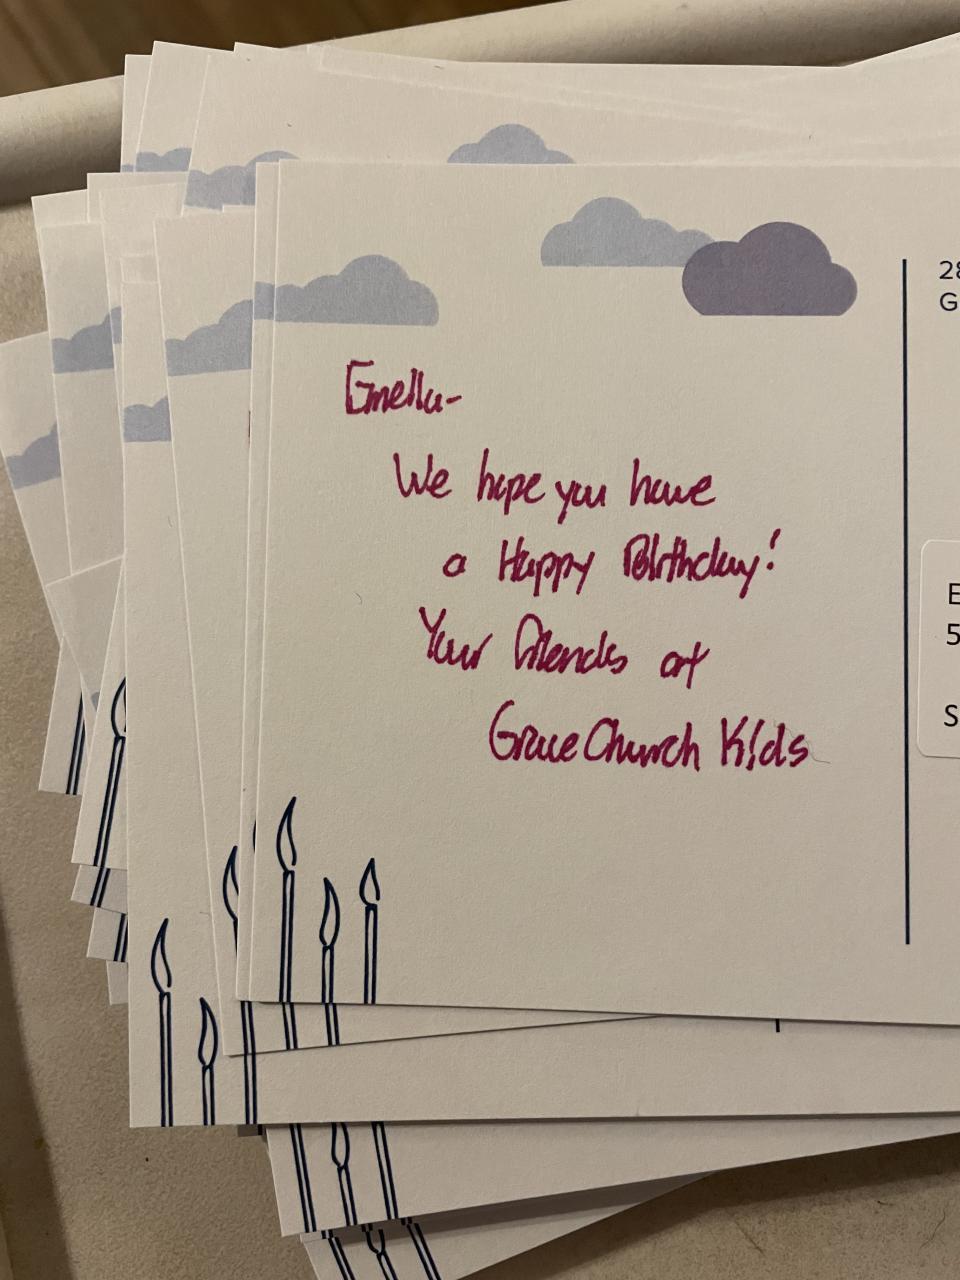 Emelia-
We hope you have
a Happy Birthday!
Your friends at
Grace Church Kids
28
G
E
5
S